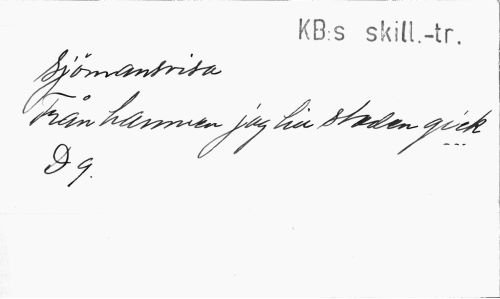 KB:s skill.-tr.
Sjömansvisa
Från hamnen jag till staden gick
D 9.